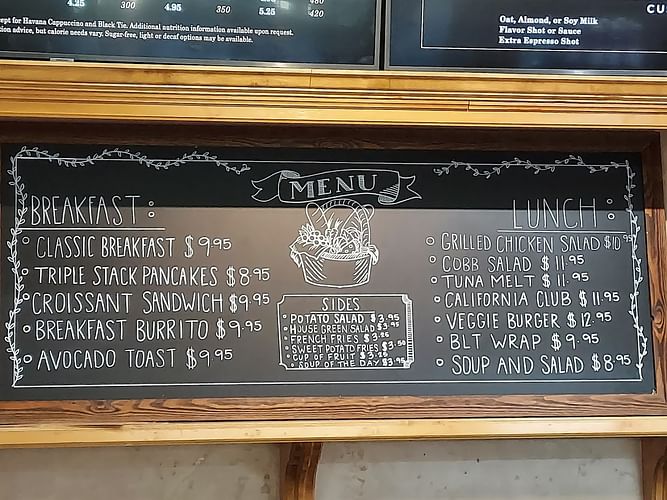 4.25 300 4.95 350 5.25 420
ept for Havana Cappuccino and Black Tie. Additional nutrition information available upon request.
tion advice, but calorie needs vary. Sugar-free, light or decaf options may be available.
CU
Oat, Almond, or Soy Milk
Flavor Shot or Sauce
Extra Espresso Shot
MENU
BREAKFAST:
CLASSIC BREAKFAST $9.95
TRIPLE STACK PANCAKES $8.95
CROISSANT SANDWICH $9.95
BREAKFAST BURRITO $9.95
AVOCADO TOAST $9.95
SIDES
POTATO SALAD $3.95
HOUSE GREEN SALAD $3.95
FRENCH FRIES
SWEET POTATO FRIES $3.50
CUP OF FRUIT
SOUP OF THE DAY $3.95
LUNCH:
GRILLED CHICKEN SALAD $10.95
COBB SALAD $11.95
TUNA MELT $11.95
CALIFORNIA CLUB $11.95
VEGGIE BURGER $12.95
BLT WRAP $9.95
SOUP AND SALAD $8.95